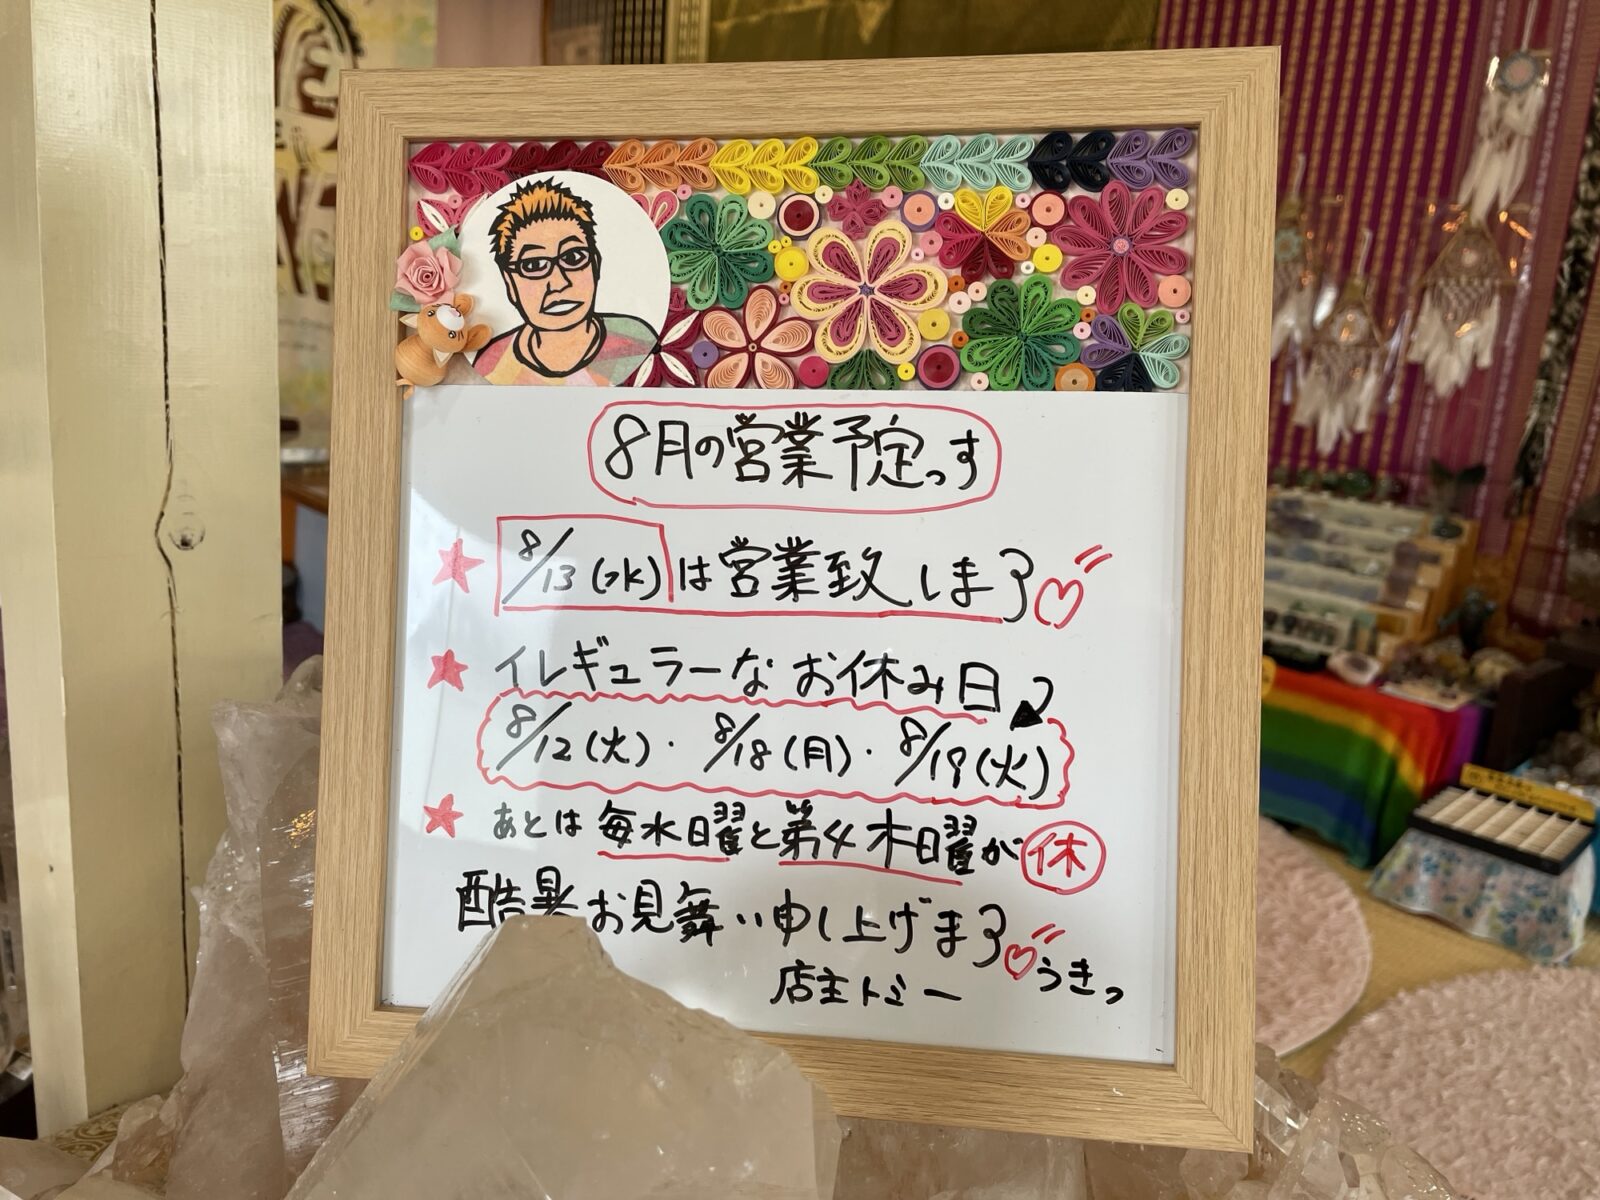 8月の営業予定っす
★ 8/13(水)は営業致しまう♡
★ イレギュラーなお休み日
8/12(火)・8/18(月)・8/19(火)
★ あとは毎水曜日と第4木曜日が休
酷暑お見舞い申し上げまう♡うきっ
店主トミー